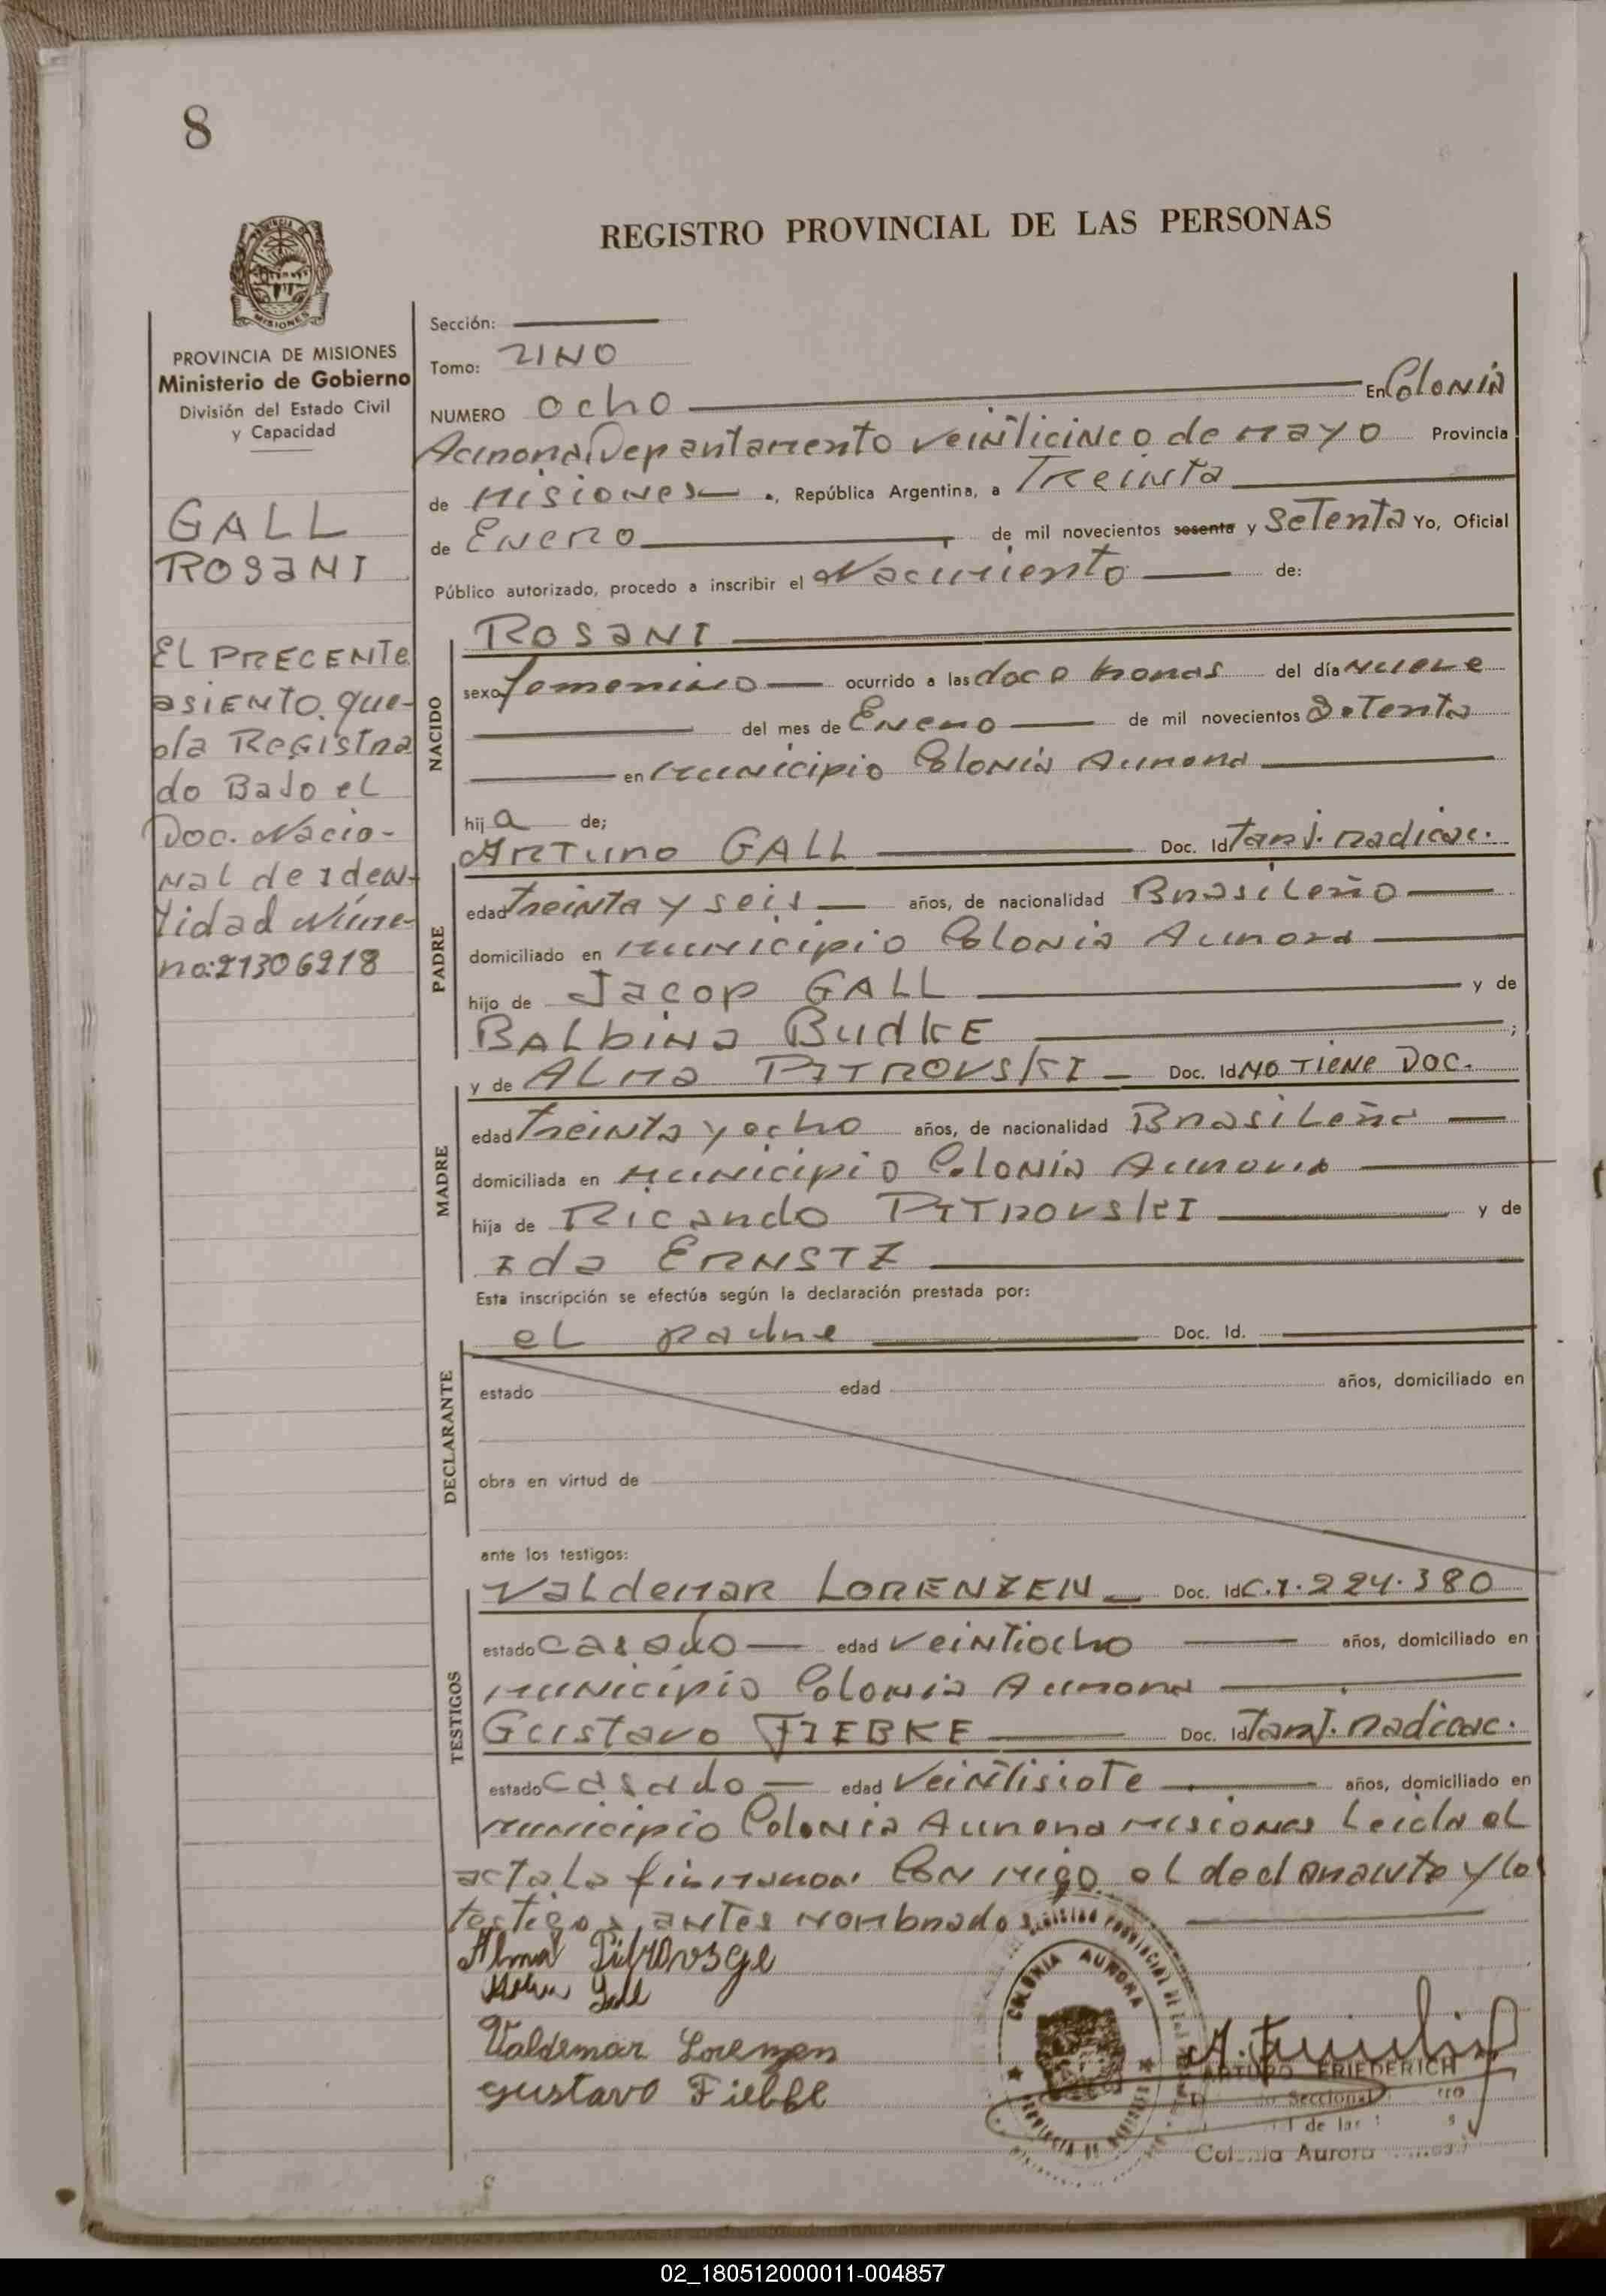 8
REGISTRO PROVINCIAL DE LAS PERSONAS
MISIONES
PROVINCIA DE MISIONES
Ministerio de Gobierno
División del Estado Civil
y Capacidad
GALL
ROSANI
EL PRECENTe
asiento. que-
da Registra
do Bajo el
Doc. Nacio-
nal de iden-
tidad Núme-
ro:21306218
Sección:
Tomo: UNO
NUMERO Ocho En Colonia
Aurora, Departamento veinticinco de mayo Provincia
de Misiones ., República Argentina, a Treinta
de Enero de mil novecientos sesenta y Setenta Yo, Oficial
Público autorizado, procedo a inscribir el Nacimiento de:
NACIDO
ROSANI
sexo femenino ocurrido a las doce horas del día nueve
del mes de Enero de mil novecientos Setenta
en municipio Colonia Aurora
hija de;
PADRE
Arturo GALL Doc. Id Tarj. radicac.
edad treinta y seis años, de nacionalidad Brasileño
domiciliado en municipio Colonia Aurora
hijo de Jacop GALL y de
BALbina BudKE ;
MADRE
y de ALma PITROVSKI Doc. Id NO TIENE DOC.
edad treinta y ocho años, de nacionalidad Brasileña
domiciliada en municipio Colonia Aurora
hija de Ricardo PITROVSKI y de
ida ERNSTZ
Esta inscripción se efectúa según la declaración prestada por:
DECLARANTE
el padre Doc. Id.
estado edad años, domiciliado en
obra en virtud de
ante los testigos:
TESTIGOS
Valdemar LORENZEN Doc. Id C.I.224.380
estado casado edad veintiocho años, domiciliado en
municipio Colonia Aurora
Gustavo FIEBKE Doc. Id Tarj. radicac.
estado casado edad veintisiete años, domiciliado en
municipio Colonia Aurora misiones Leida el
acta la firmaron Con migo el declarante y lo
testigos, antes nombrados
Alma Pitrovsge
Gall
Valdemar Lorenzen
Gustavo Fiebke
COLONIA AURORA
ARTURO FRIEDERICH
Seccional
de las
Colonia Aurora
02_180512000011-004857